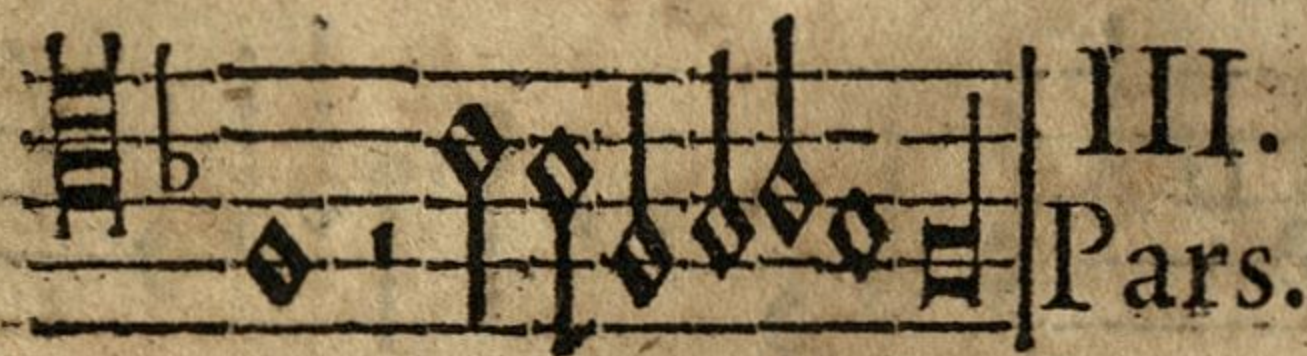 III.
Pars.